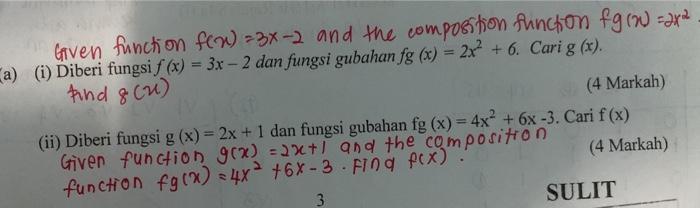 Given function f(x) =3x-2 and the composition function fg(x) =2x²
a) (i) Diberi fungsi f (x) = 3x – 2 dan fungsi gubahan fg (x) = 2x² + 6. Cari g (x).
find g(x)
(4 Markah)
(ii) Diberi fungsi g (x) = 2x + 1 dan fungsi gubahan fg (x) = 4x² + 6x -3. Cari f (x)
Given function g(x) =2x+1 and the composition
(4 Markah)
function fg(x) =4x² +6x-3. Find f(x).
3
SULIT